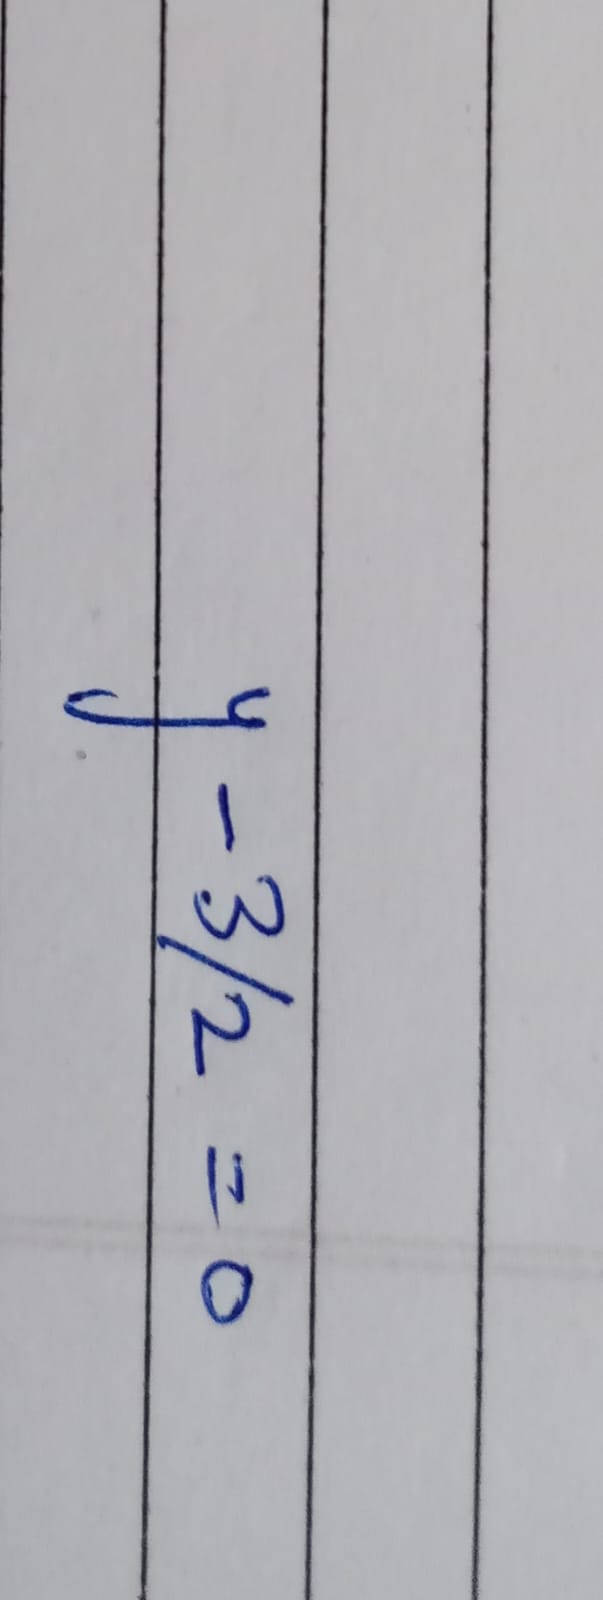 y - 3/2 = 0